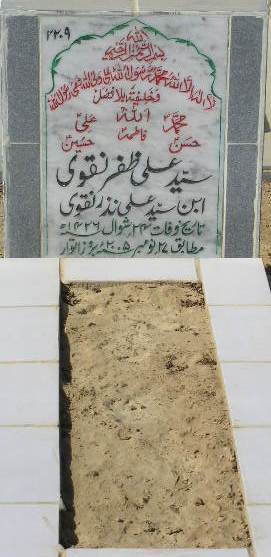 ۲۲۰۹
بسم اللہ الرحمن الرحیم
لا الہ الا اللہ محمد رسول اللہ علی ولی اللہ وصی رسول اللہ
وخلیفتہ بلا فصل
اللہ
محمدؐ فاطمہؑ علیؑ
حسنؑ حسینؑ
سید علی ظفر نقوی
ابن سید علی نذر نقوی
تاریخ وفات ۲۴ شوال ۱۴۲۶ھ
مطابق ۲۷ نومبر ۲۰۰۵ء بروز اتوار